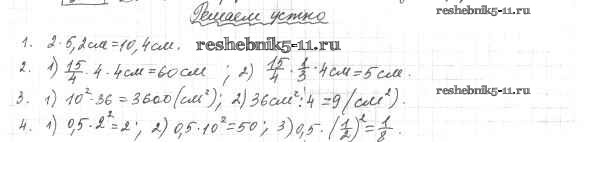 Решаем устно
1. 2·5,2см=10,4см. reshebnik5-11.ru
reshebnik5-11.ru
2. 1) 15/4·4·4см=60см; 2) 15/4·1/3·4см=5см.
3. 1) 10²·36=3600(см²); 2) 36см²:4=9(см²).
reshebnik5-11.ru
4. 1) 0,5·2²=2; 2) 0,5·10²=50; 3) 0,5·(1/2)²=1/8.